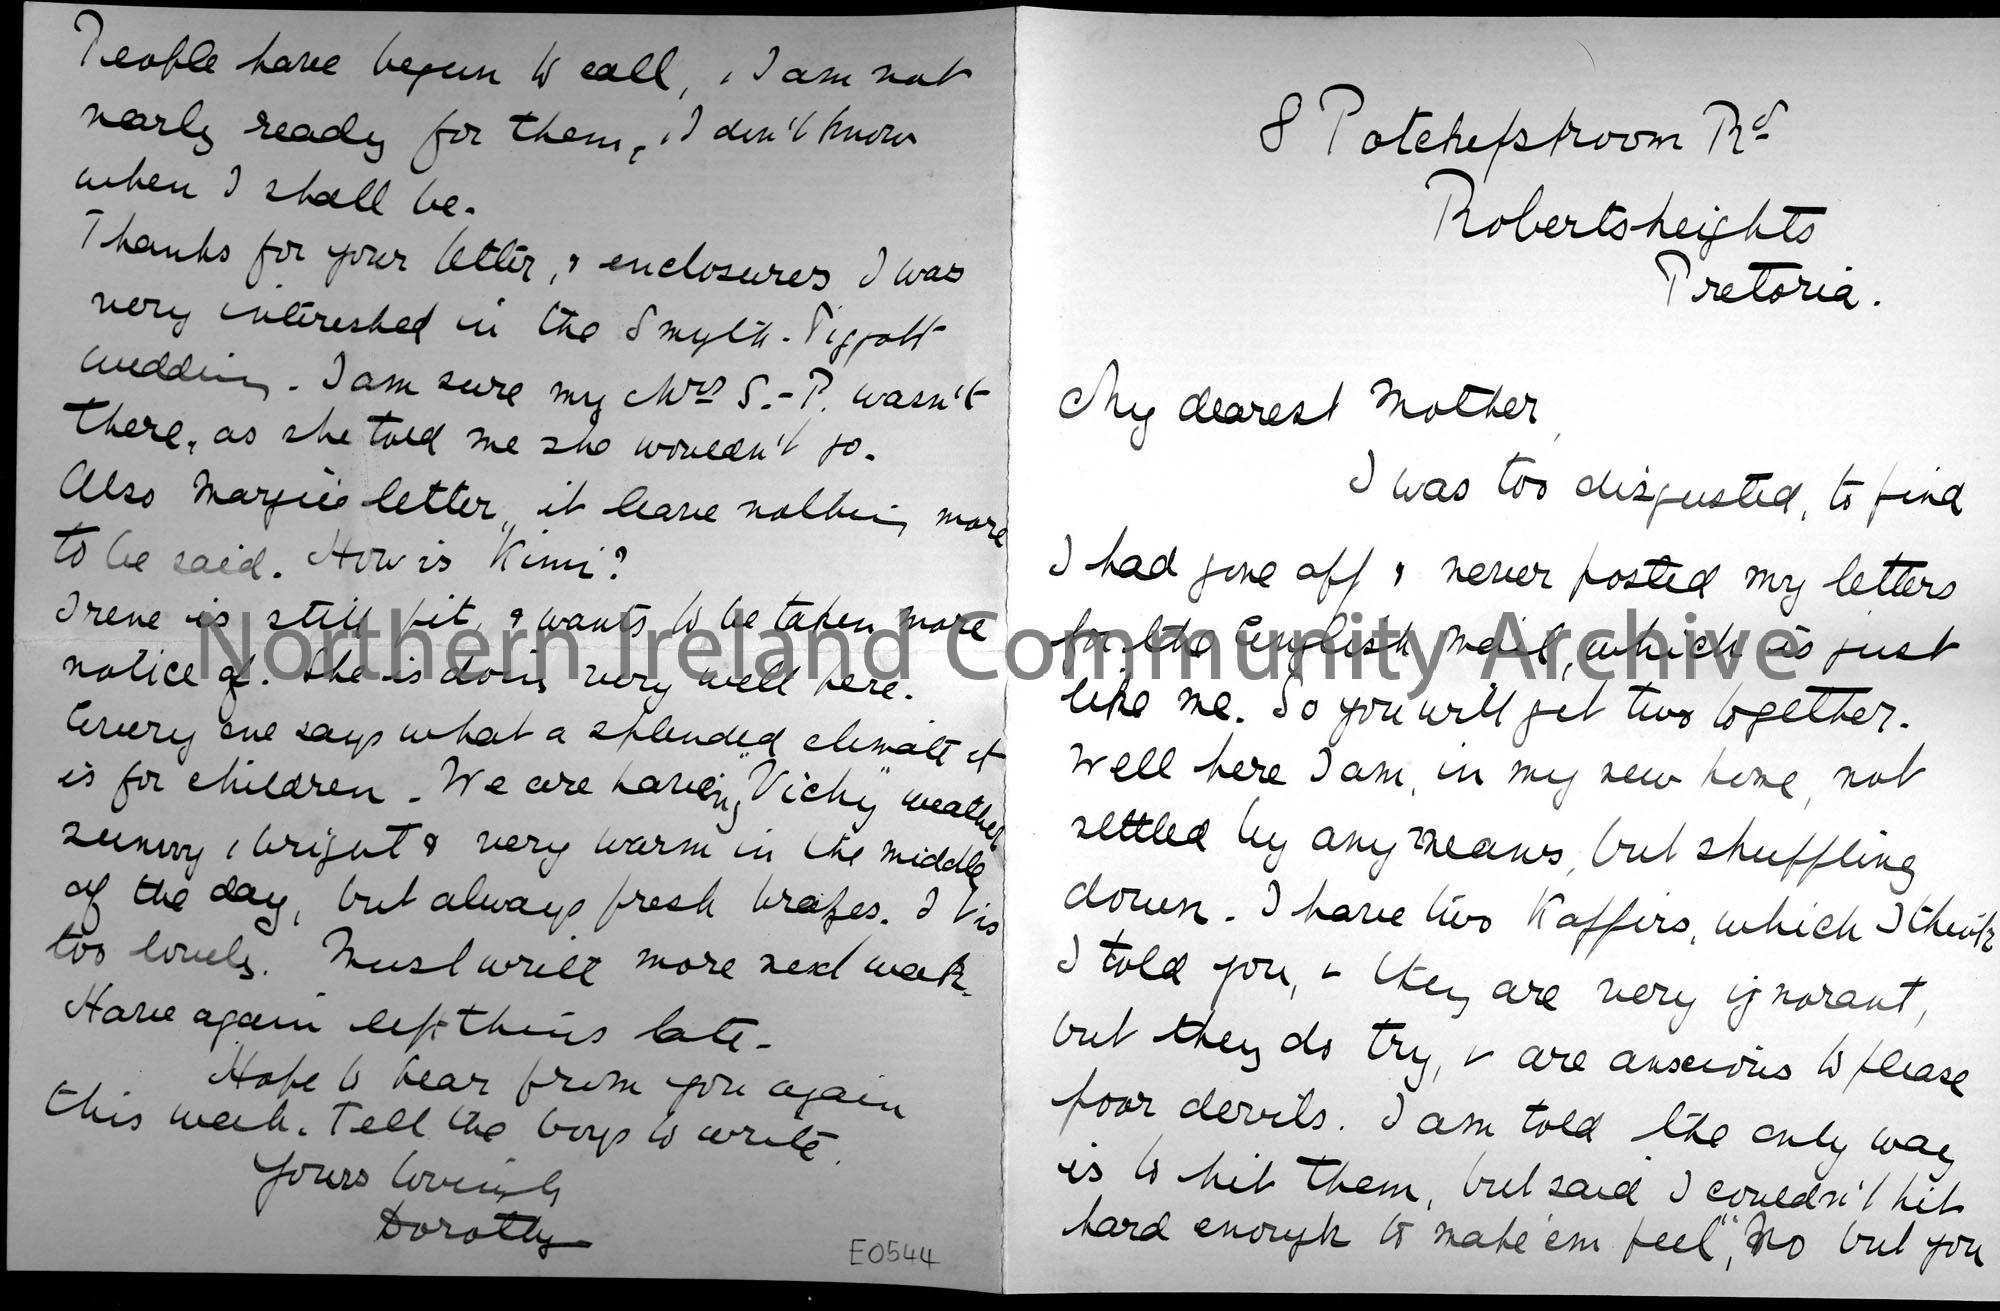 8 Potchefstroom Rd
Robertsheights
Pretoria.
My dearest Mother,
I was too disgusted, to find
I had gone off & never posted my letters
for the English Mail, which is just
like me. So you will get two together.
Well here I am, in my new home, not
settled by any means, but shuffling
down. I have two Kaffirs, which I think
I told you, & they are very ignorant,
but they do try, & are anxious to please
poor devils. I am told the only way
is to hit them, but said I couldn't hit
hard enough to make 'em feel", "No but you
People have begun to call, & I am not
nearly ready for them, & I don't know
when I shall be.
Thanks for your letter, & enclosures I was
very interested in the Smyth-Piggott
wedding. I am sure my Mrs S.-P. wasn't
there, as she told me she wouldn't go.
Also Margie's letter, it leave nothing more
to be said. How is Kimi?
Irene is still fit, & wants to be taken more
notice of. She is doing very well here.
Every one says what a splended climate it
is for children. We are having "Vichy" weather
sunny & bright & very warm in the middle
of the day, but always fresh brafes. It is
too lovely. Must write more next week.
Have again left this late.
Hope to hear from you again
this week. Tell the boys to write.
Yours lovingly
Dorothy
E0544
Northern Ireland Community Archive